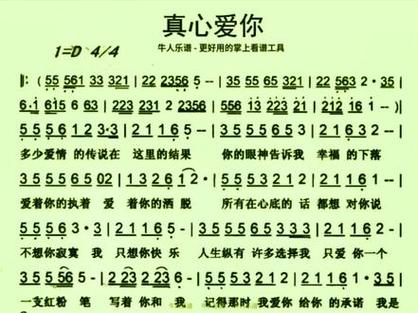 真心爱你
牛人乐谱 - 更好用的掌上看谱工具
1=D 4/4
‖: ( 55 561 33 321 | 22 2356 5 -- | 35 55 65 321 | 22 563 2 · 35 |
6·1 615 6 63 | 223 231 2 2356 | 556 13 223 21 | 212 16 1 -- )|
5 5 5 6 1 2 3·3 | 2 1 1 6 5 · | 5 5 5 6 3 3 2 3 | 2 1 1 6 2 -- |
多少爱情 的传说在 这里的结果 你的眼神告诉我 幸福 的下落
3 5 5 5 5 6 5 02 | 1 3 2 6 1 2 · | 5 5 5 3 2 1 3 | 2 2 1 1 6 1 -- |
爱着你的执着 爱 着你的洒 脱 所有在心底的 话 都想 对你说
5 5 5 6 3 · 3 | 2 1 1 6 5 · | 5 5 5 6 3 3 2 3 | 2 1 1 6 2 -- |
不想你寂寞 我 只想你快 乐 人生纵有 许多选择我 只爱 你一个
3 5 5 56 5 - | 2 23 2 23 6 - | 5 5 5 3 2 1 3 | 2 2 1 1 6 1 ·
一支红粉 笔 写着 你和 我 记得那时 我爱你 给你 的承诺 我是